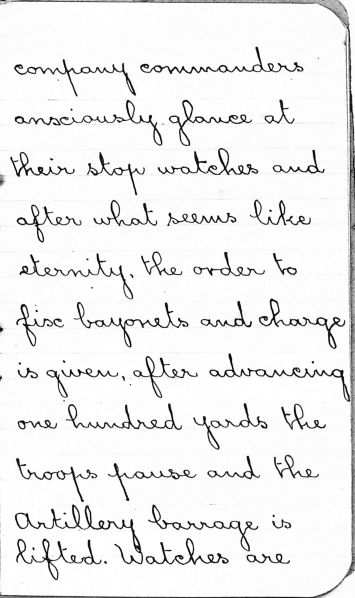 company commanders
ansciously glance at
their stop watches and
after what seems like
eternity, the order to
fisc bayonets and charge
is given, after advancing
one hundred yards the
troops pause and the
Artillery barrage is
lifted. Watches are